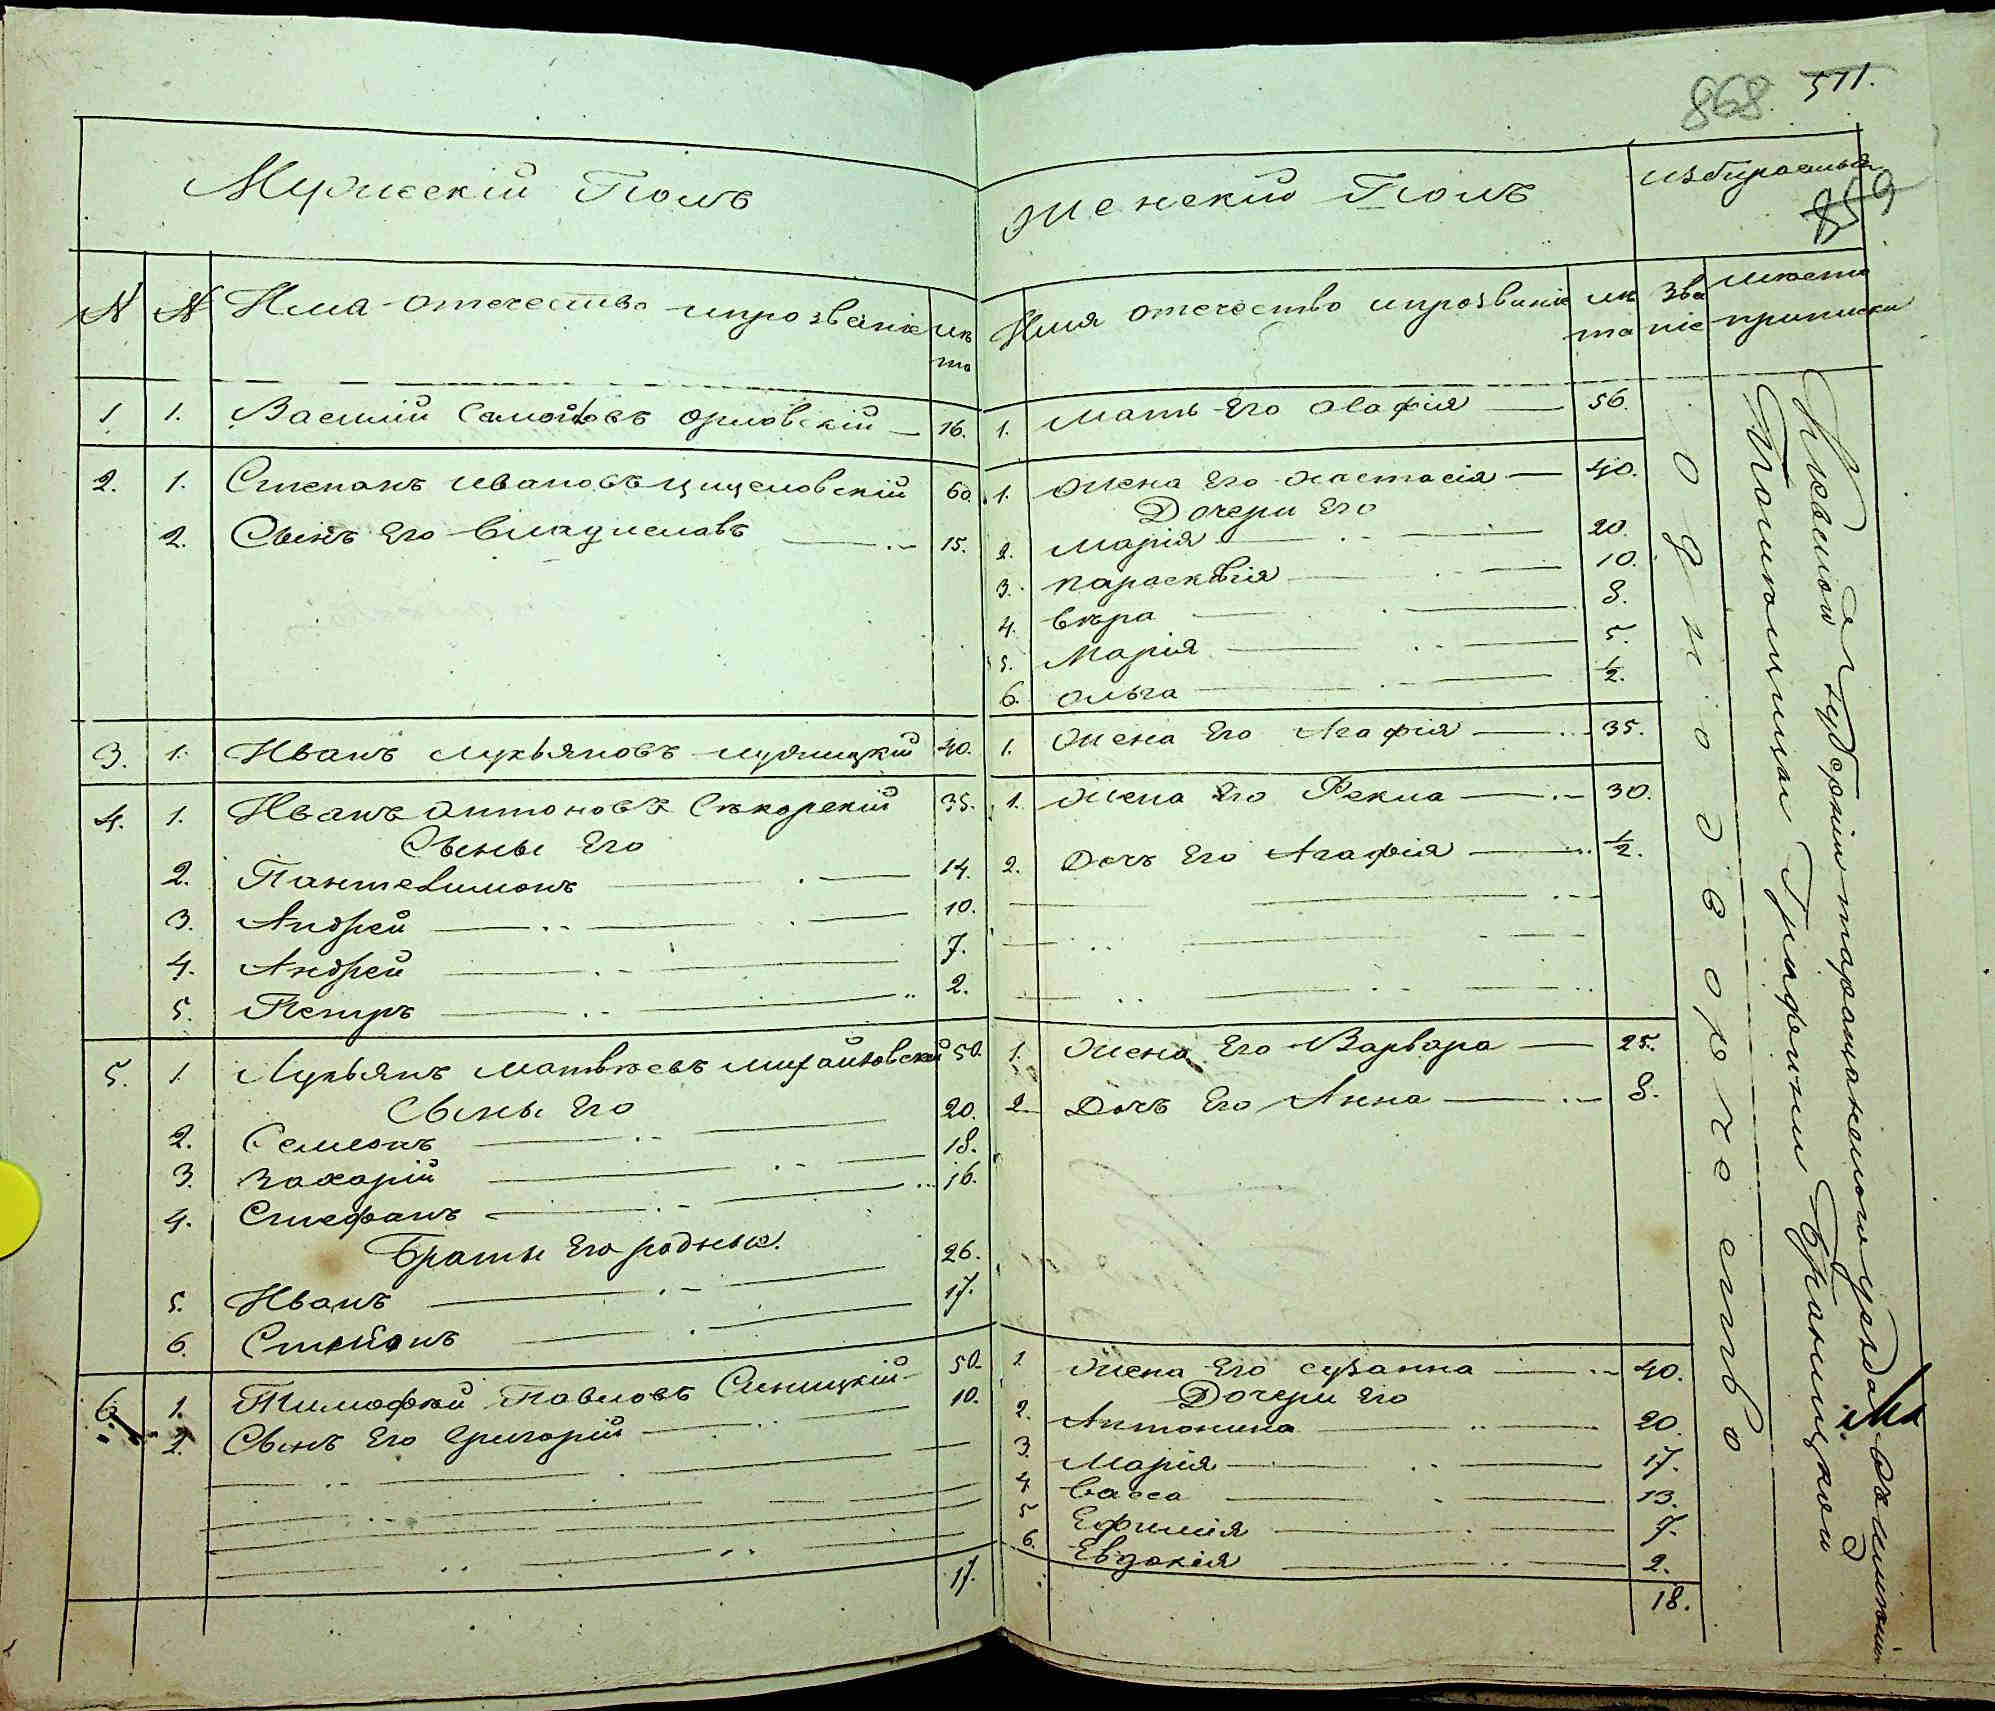 868. 571.
859
Мужескій Полъ
№ № Имя отечество ипрозваніе лѣта
1 1. Василій Самойловъ Орловскій 16.
2. 1. Степанъ Ивановъ 60.
2. Сынъ Его Владиславъ 15.
3. 1. Иванъ Лукьяновъ 40.
4. 1. Иванъ Антоновъ Сѣкорскій 35.
Сыны Его
2. Пантелимонъ 14.
3. Андрей 10.
4. Андрей 7.
5. Петръ 2.
5. 1. Лукьянъ Матвѣевъ Михайловскій 50.
Сыны Его
2. Семеонъ 20.
3. Захарій 18.
4. Стефанъ 16.
Браты Его родные.
5. Иванъ 26.
6. Степанъ 17.
6. 1. Тимофѣй Павловъ Синицкій 50.
2. Сынъ Его Григорій 10.
17.
Женскій Полъ
Имя отечество ипрозваніе лѣта Званіе мѣсто приписки
1. Мать Его Агафія 56.
1. Жена Его Настасія 40.
Дочери Его
2. Марія 20.
3. Параскѣвія 10.
4. Вѣра 8.
5. Марія 5.
6. Ольга ½.
1. Жена Его Агафія 35.
1. Жена Его Фекла 30.
2. Дочь Его Агафія ½.
1. Жена Его Варвара 25.
2. Дочь Его Анна 8.
1. Жена Его Сузанна 40.
Дочери Его
2. Антонина 20.
3. Марія 17.
4. Васса 13.
5. Ефимія 7.
6. Евдокія 2.
18.
Однодворчество
Помѣщици Графини Браницкой
Кіевской Губерніи таращанского уезда въимѣніи